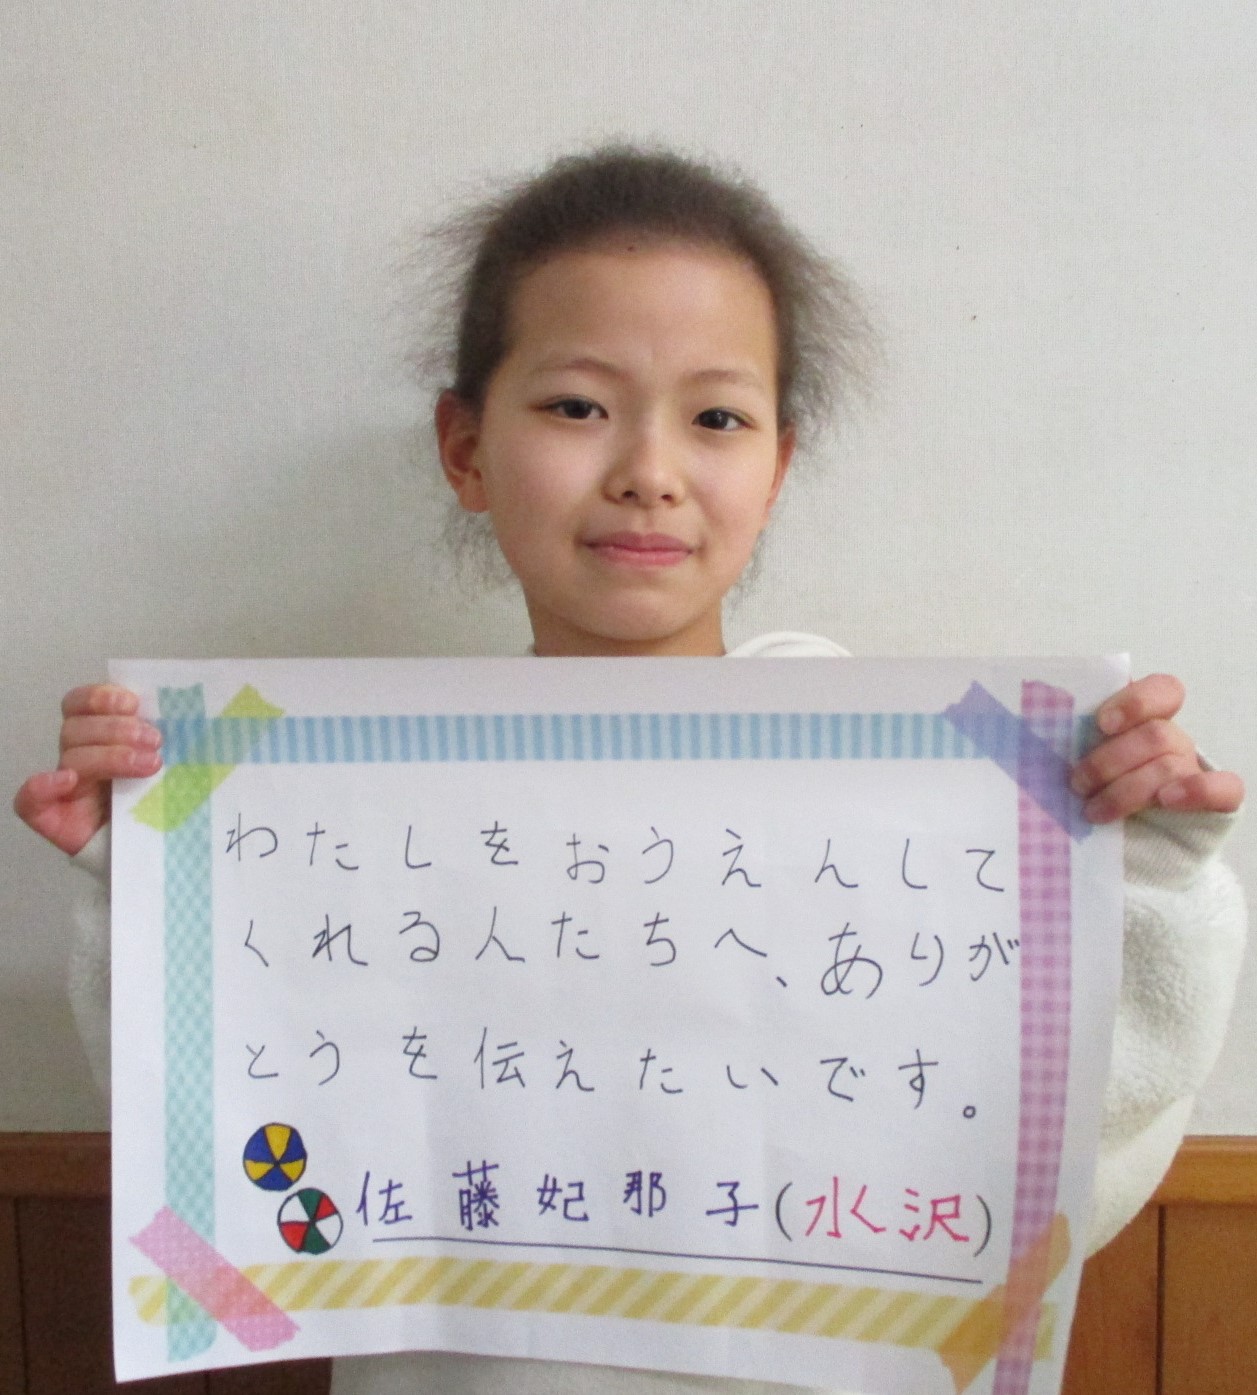 わたしをおうえんして
くれる人たちへ、ありが
とうを伝えたいです。
佐藤妃那子(水沢)